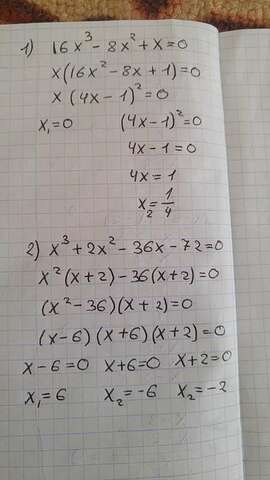 1) 16x³ - 8x² + x = 0
x(16x² - 8x + 1) = 0
x (4x - 1)² = 0
x₁ = 0 (4x - 1)² = 0
4x - 1 = 0
4x = 1
x₂ = 1/4
2) x³ + 2x² - 36x - 72 = 0
x²(x + 2) - 36(x + 2) = 0
(x² - 36)(x + 2) = 0
(x - 6)(x + 6)(x + 2) = 0
x - 6 = 0 x + 6 = 0 x + 2 = 0
x₁ = 6 x₂ = -6 x₂ = -2